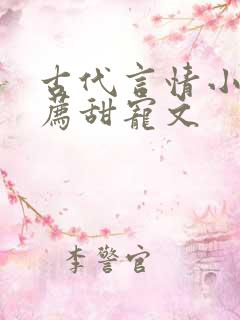 古代言情小
薦甜寵文
李警官